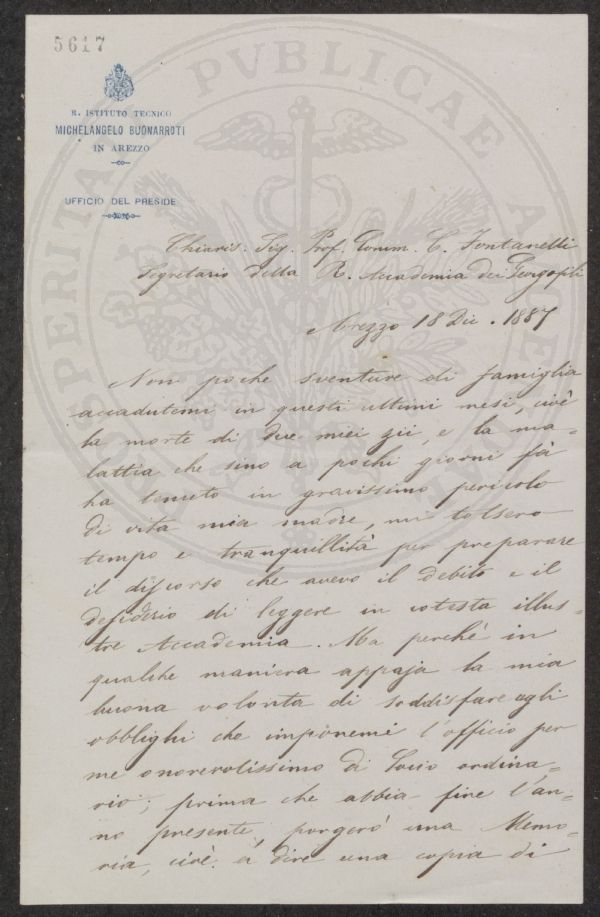 5617
R. ISTITUTO TECNICO
MICHELANGELO BUONARROTI
IN AREZZO
UFFICIO DEL PRESIDE
PROSPERITATI PVBLICAE AVGENDAE
Chiaris. Sig. Prof. Comm. C. Fontanelli
Segretario della R. Accademia dei Georgofili
Arezzo 18 Dic. 1887
Non poche sventure di famiglia
accadutemi in questi ultimi mesi, cioè
la morte di due miei zii, e la ma-
lattia che sino a pochi giorni fà
ha tenuto in gravissimo pericolo
di vita mia madre, mi tolsero
tempo e tranquillità per preparare
il discorso che avevo il debito e il
desiderio di leggere in cotesta illus-
tre Accademia. Ma perchè in
qualche maniera appaja la mia
buona volontà di soddisfare agli
obblighi che imponemi l'officio per
me onorevolissimo di Socio ordina-
rio; prima che abbia fine l'an-
no presente, porgerò una Memo-
ria, cioè a dire una copia di